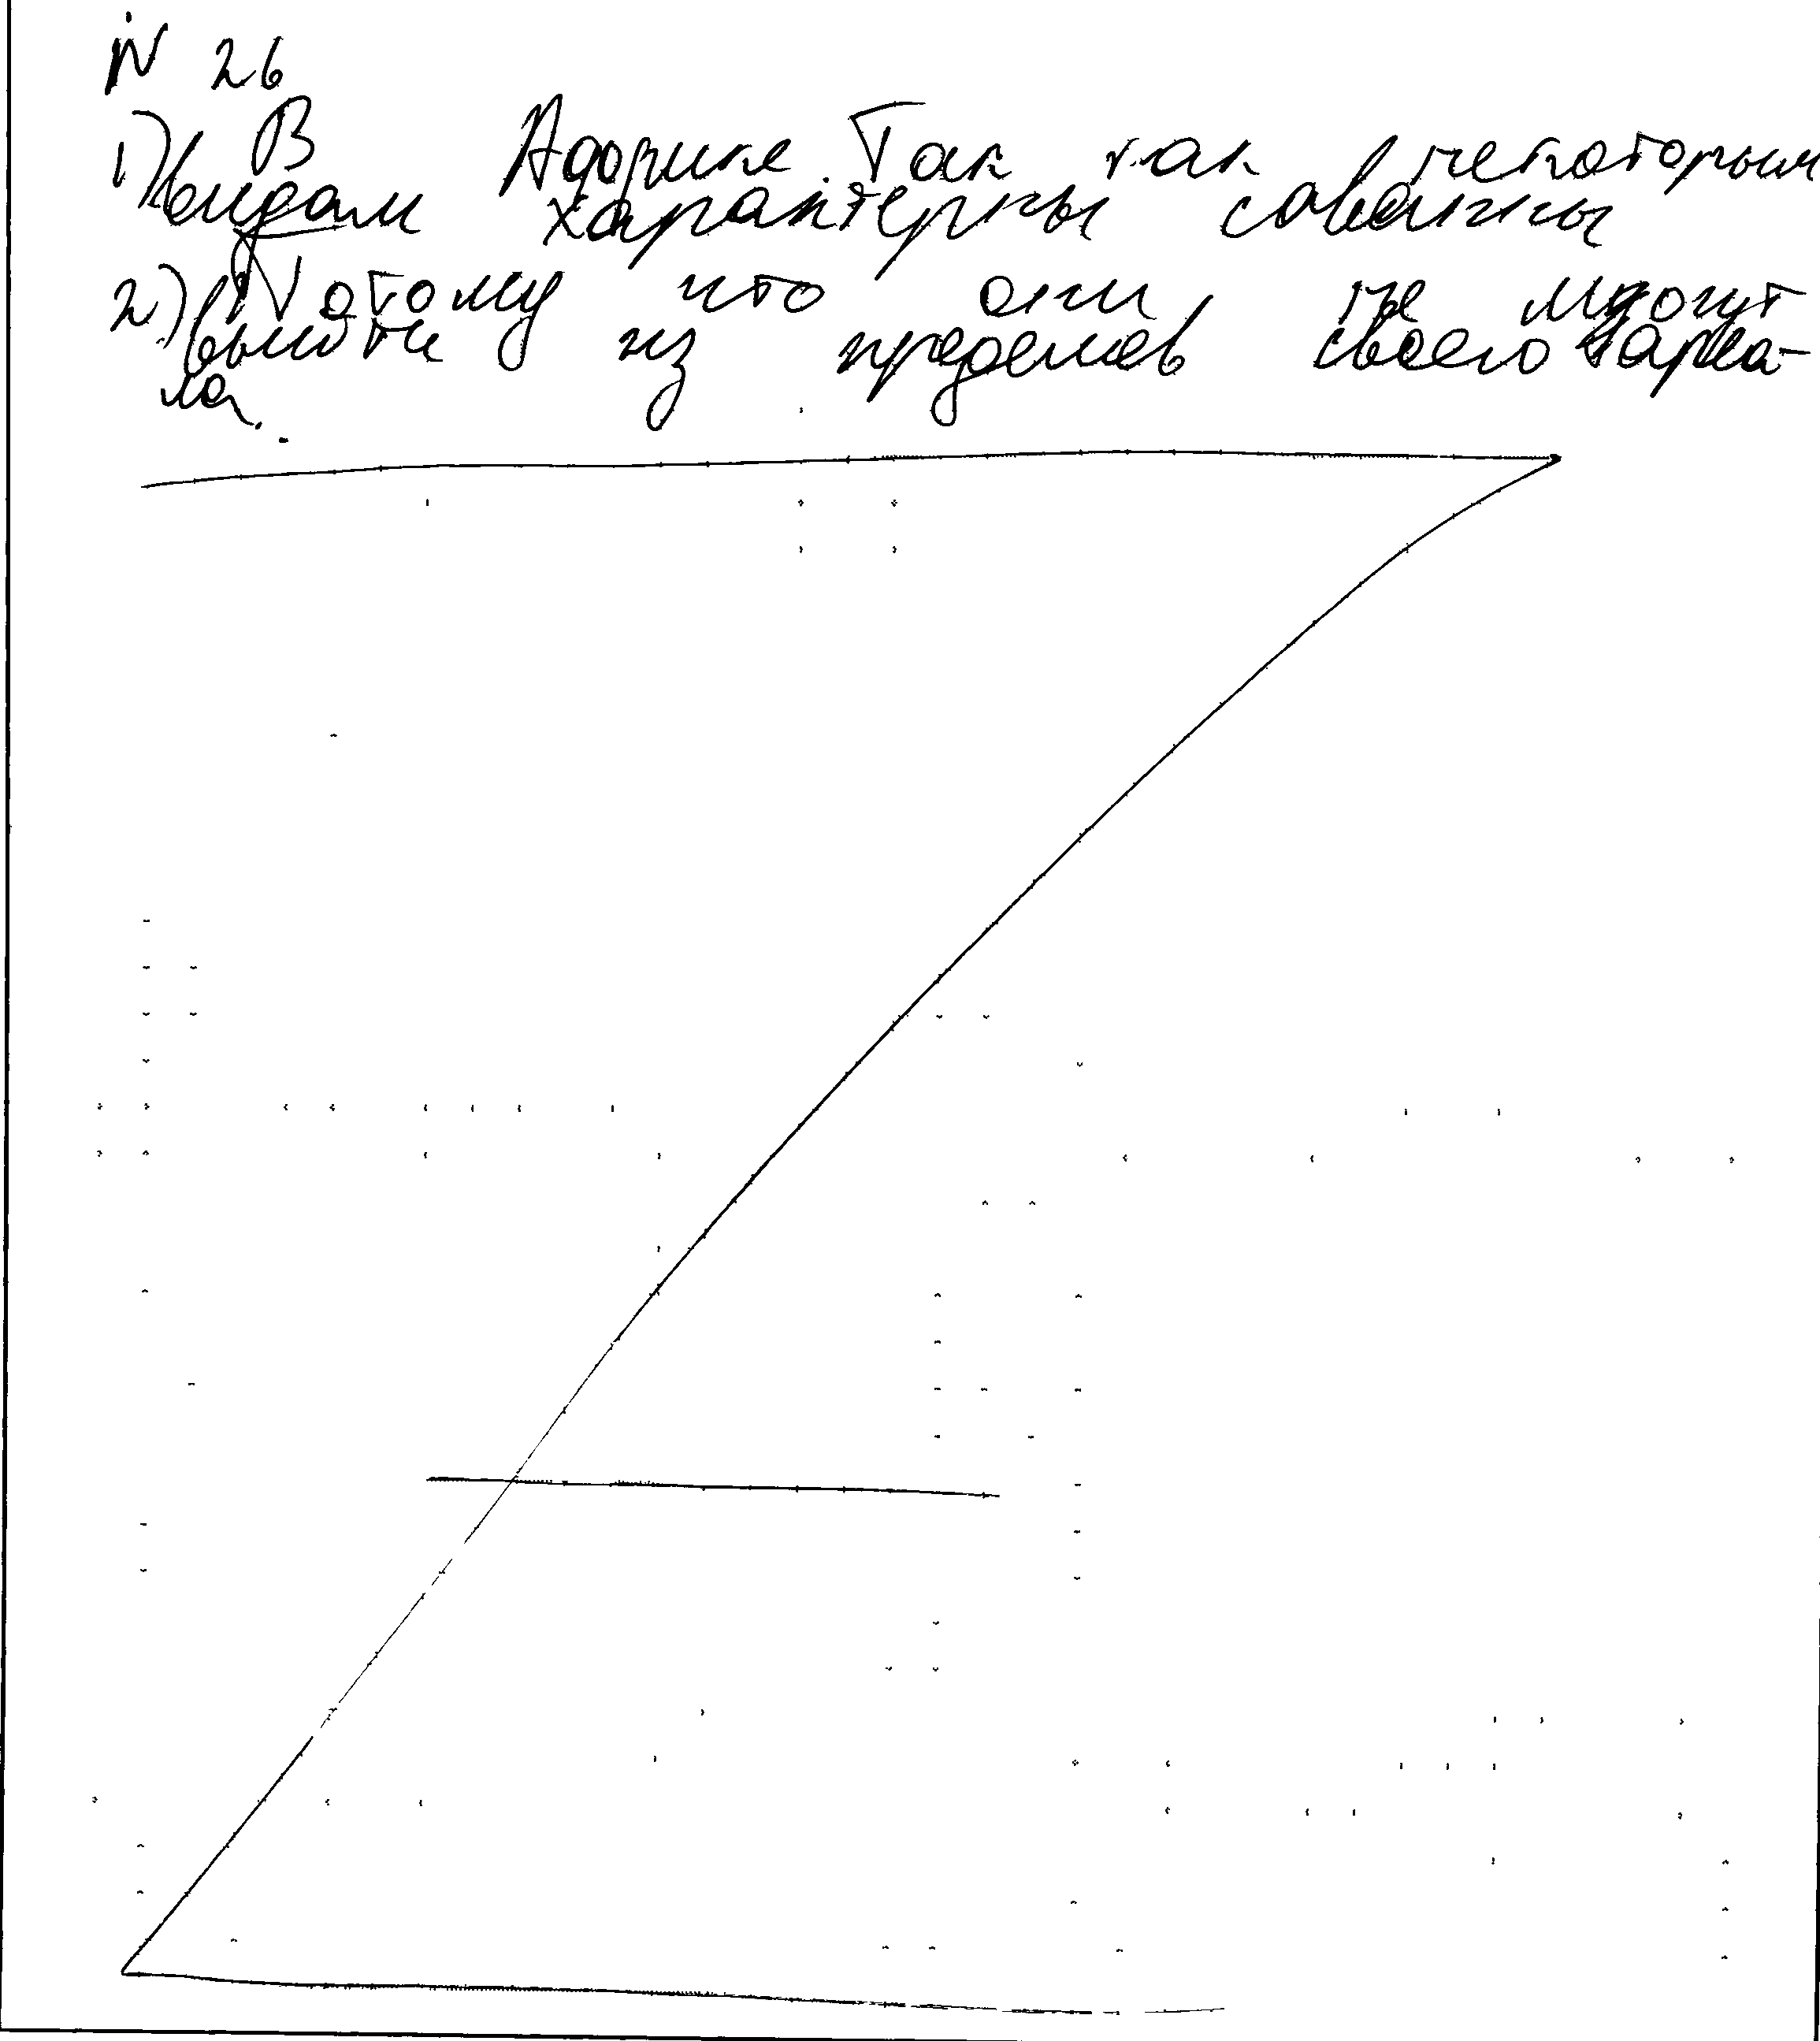 № 26
1) В Африке. Так как некоторым
видам характерны саванны
2) Потому что они не могут
выйти из пределов своего ареа-
ла.